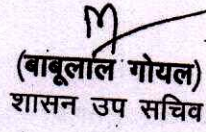 (बाबूलाल गोयल)
शासन उप सचिव